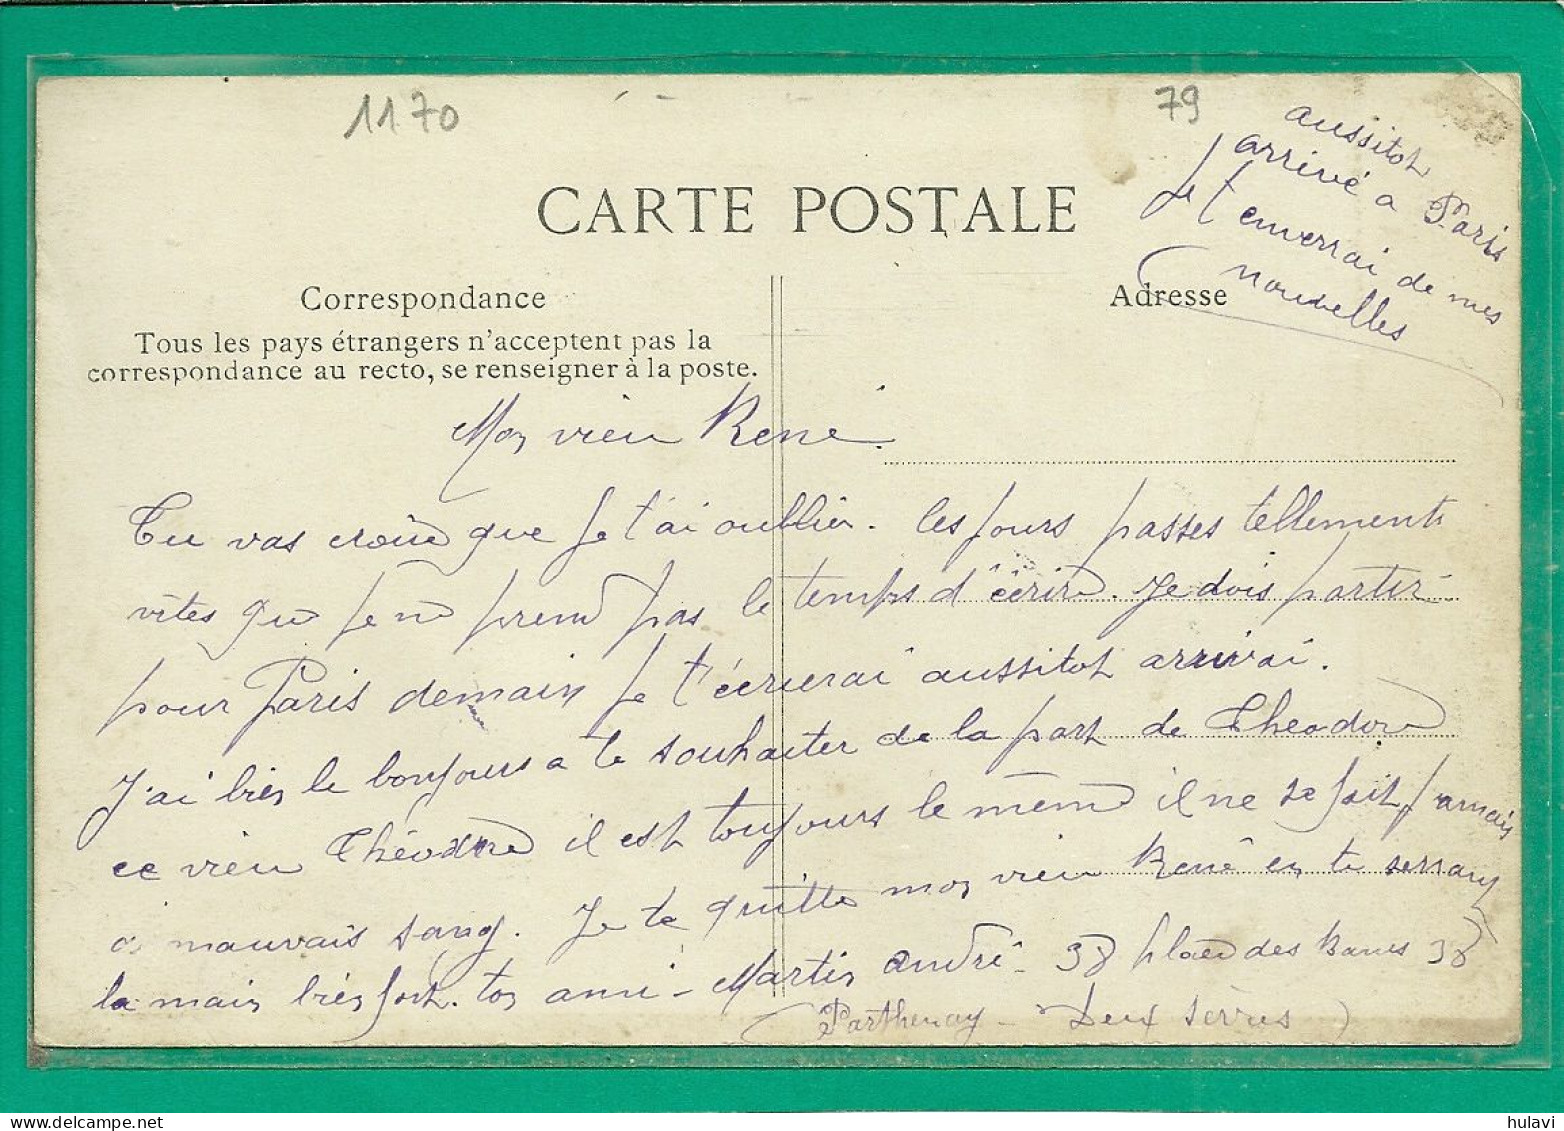 1170
79
aussitot
arrivé a Paris
Je t'enverrai de mes
nouvelles
CARTE POSTALE
Correspondance
Adresse
Tous les pays étrangers n'acceptent pas la
correspondance au recto, se renseigner à la poste.
Mon vieu René.
Tu vas croire que je t'ai oublier. les jours passes tellements
vites que je ne prend pas le temps d'écrire. Je dois partir
pour Paris demain je t'écrierai aussitot arrivai.
J'ai bien le bonjours a te souhaiter de la part de Théodore
ce vieu Théodore il est toujours le même il ne se fait jamais
de mauvais sang. Je te quitte mon vieu René en te serrant
la main bien fort. ton ami - Martin André - 38 place des Bancs 38
(Parthenay - Deux Sèvres)
hulavi